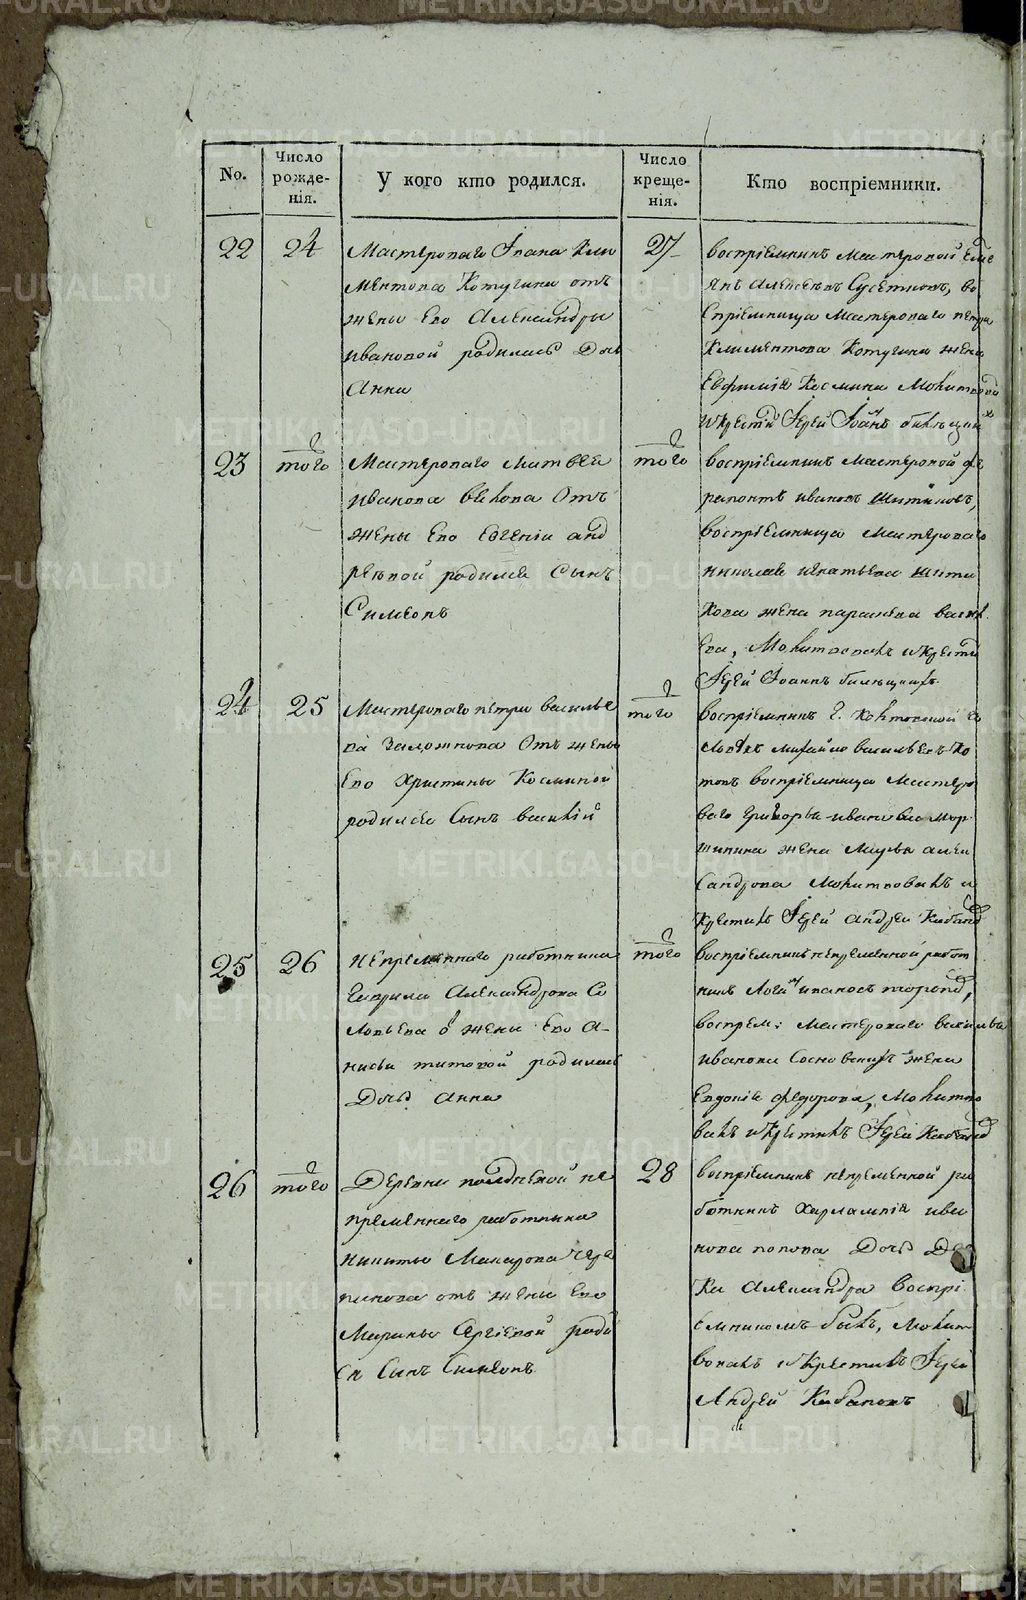 No.
Число рожде-нія.
У кого кто родился.
Число креще-нія.
Кто воспріемники.
22
24
Мастероваго Iвана Кли
ментова Котугина отъ
жены Его Александры
ивановой родилась Дочь
Анна
27
воспріемникъ мастеровой Еме
янъ Алексеевъ, во
спріемница мастероваго петра
Климентова Котугина жена
Евфимія Космина Молитвов
и крести Iерей Iоан
23
того
Мастероваго матвеа
иванова Быкова Отъ
жены Его Евгеніи анд
реевой родился Сынъ
Симеонъ
того
воспріемникъ мастеровой фе
рапонтъ ивановъ Шитиковъ,
воспріемница мастероваго
николая игнатьева шити
кова жена параскева васил
Ева, Молитвовалъ и крести
Iерей Iоаннъ
24
25
Мастероваго петра василье
ва отъ жены
Его Христины Косминой
родился Сынъ василій
того
воспріемникъ
михайло васильевъ Ко
товъ воспріемница мастеро
ваго григорья иванова мор
шинина жена Марья алек
сандрова молитвовалъ и
крестилъ Iерей андрей Кабанов
25
26
непременнаго работника
гаврила Александрова Со
ловьева о жены Его а-
нисьи титовой родилась
Дочь анна
того
воспріемникъ непременной работ
никъ
воспрем: мастероваго василья
иванова жена
Евдокія федорова, молитво
валъ и крестилъ Iерей Кабанов
26
того
Деревни полдневой не
пременнаго работника
никиты Макарова чере
панова отъ жены Его
Марины Сергіевой роди
ся Сынъ Симеонъ
28
воспріемникъ непременной ра
ботникъ Харлампія ива
нова попова Дочь Дев
ка Александра воспрі
емникомъ былъ, молит
вовалъ и крестилъ Iерей
Андрей Кабановъ
METRIKI.GASO-URAL.RU